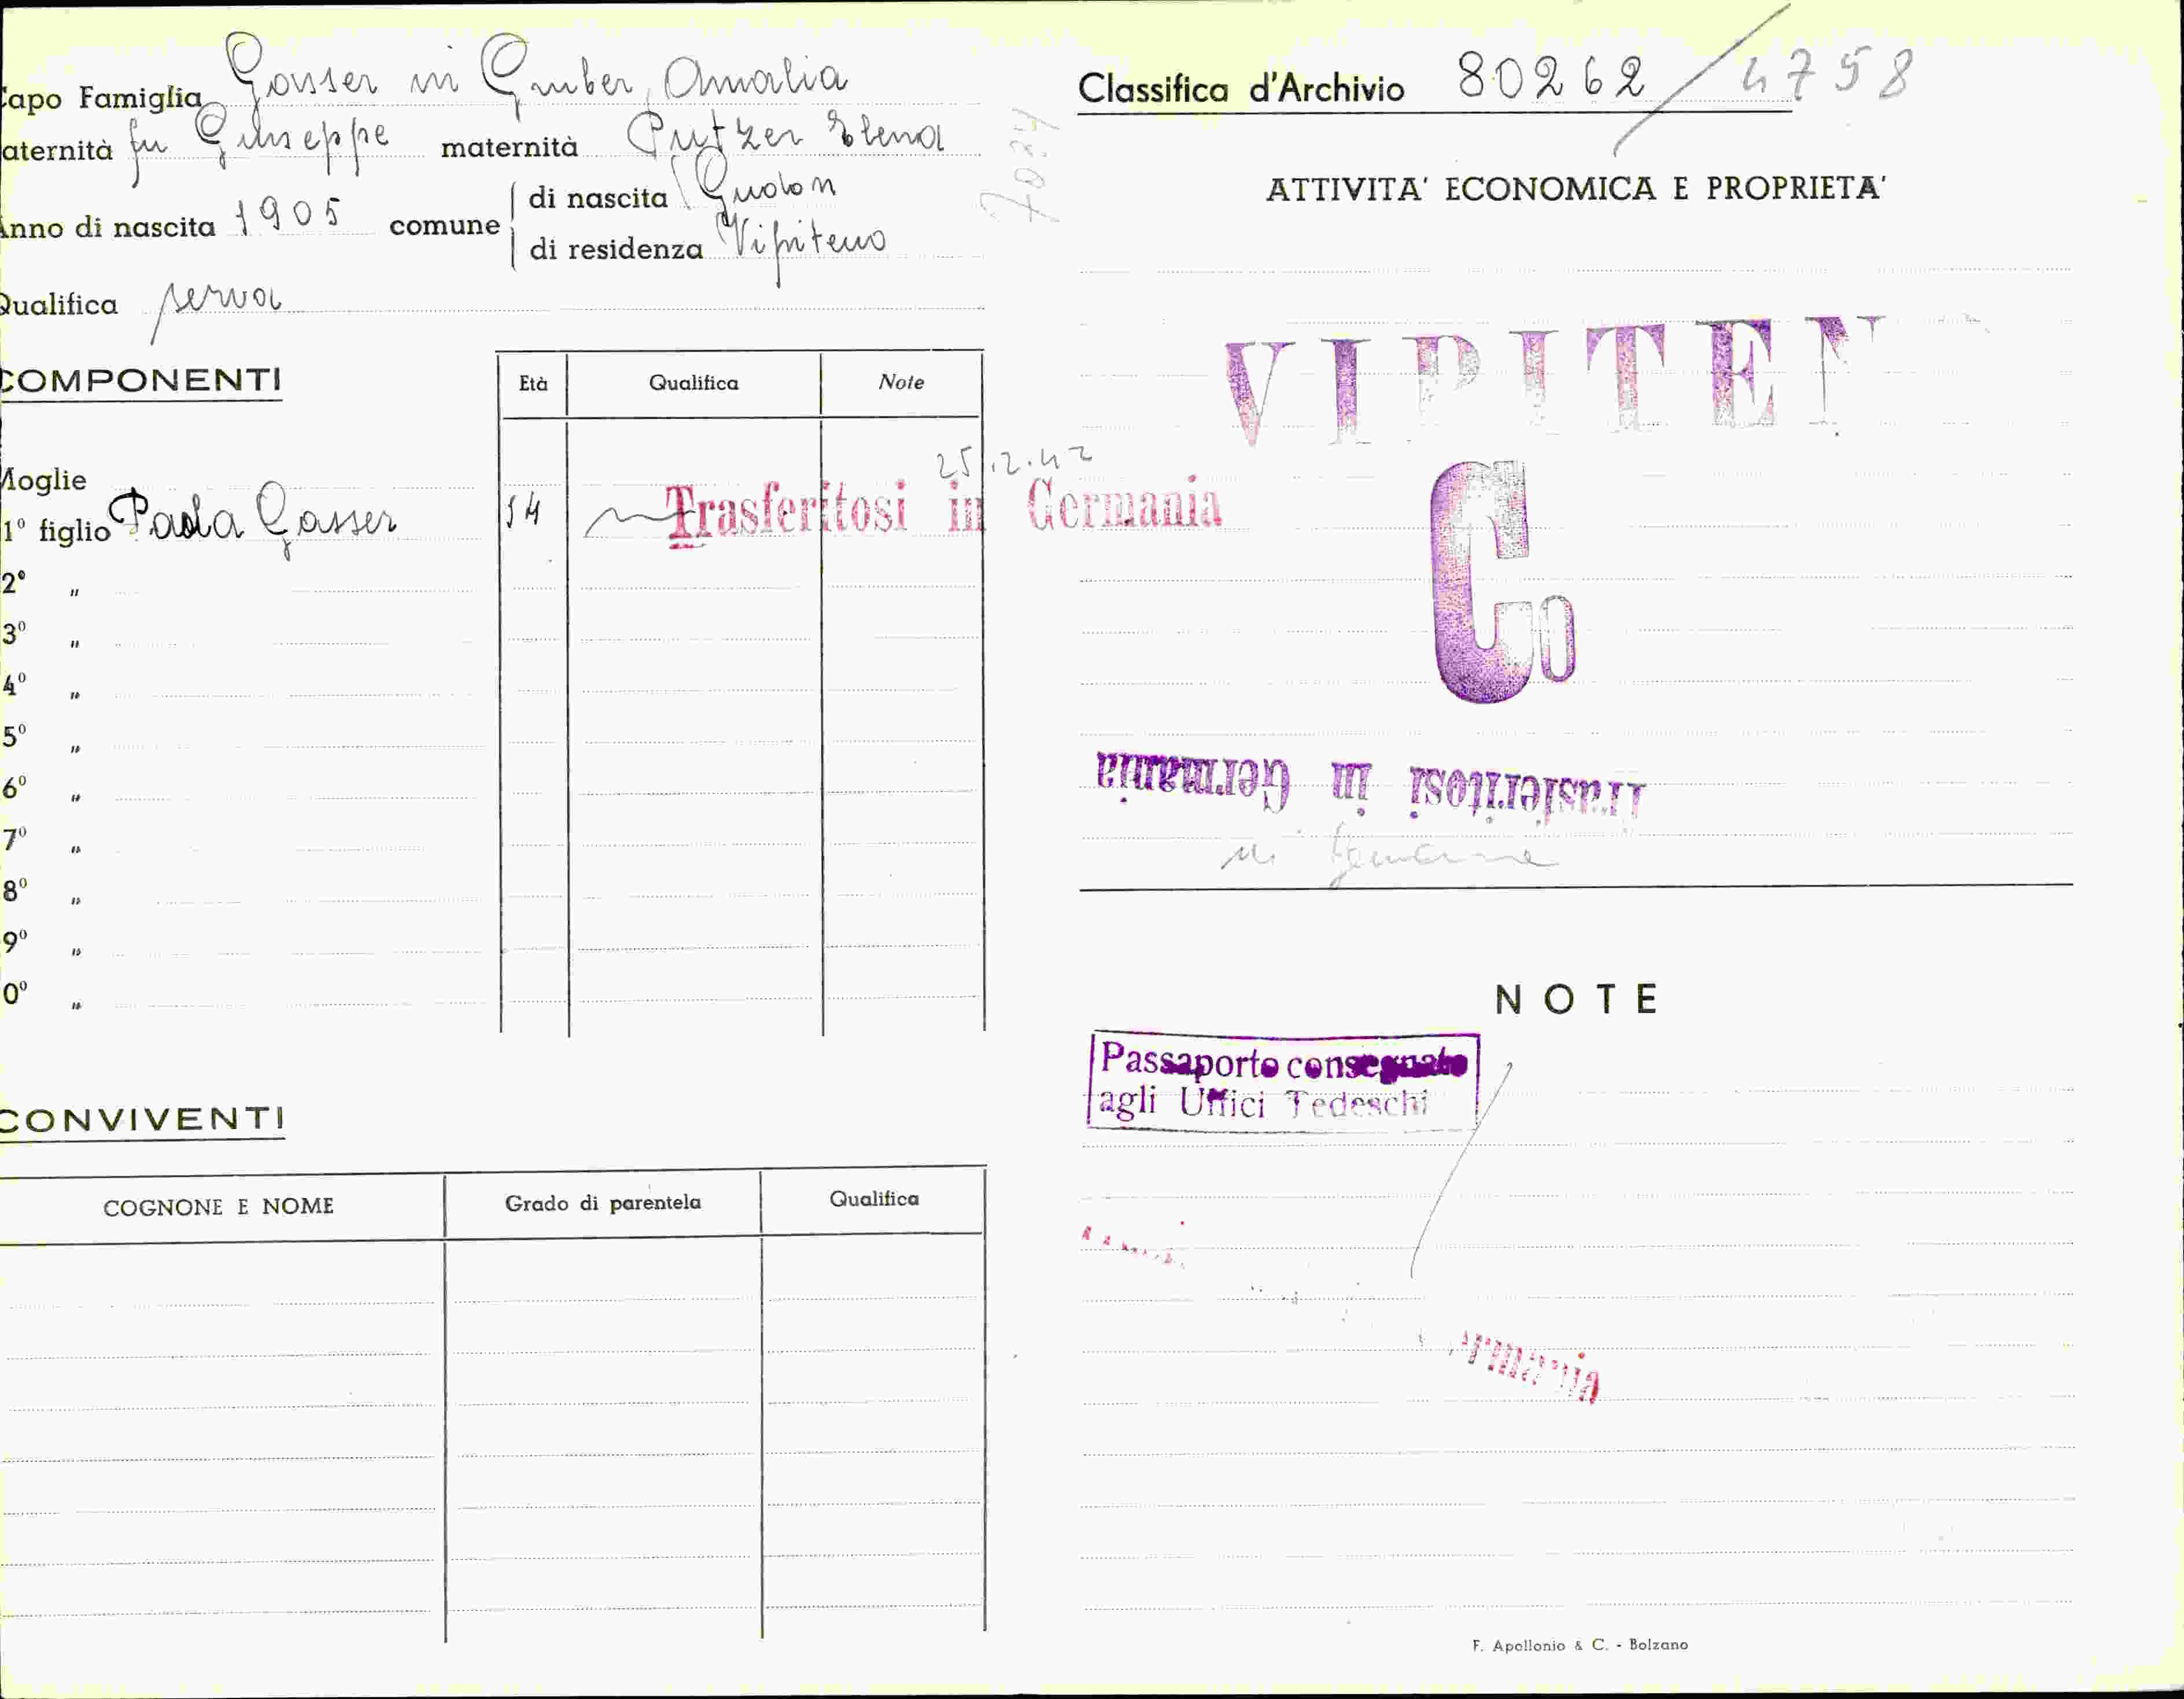 apo Famiglia Gasser in Gruber, Amalia
aternità fu Giuseppe maternità Putzer Elena
nno di nascita 1905 comune di nascita Gudon
di residenza Vipiteno
Qualifica serva
COMPONENTI
Età Qualifica Note
Moglie
25.2.42
1° figlio Paola Gasser 14 Trasferitosi in Germania
2° "
3° "
4° "
5° "
6° "
7° "
8° "
9° "
0° "
CONVIVENTI
COGNONE E NOME Grado di parentela Qualifica
7024
Classifica d'Archivio 80262/4758
ATTIVITA' ECONOMICA E PROPRIETA'
VIPITEN
Co
Trasferitosi in Germania
in Germania
NOTE
Passaporto consegnato
agli Uffici Tedeschi
ermania
F. Apollonio & C. - Bolzano